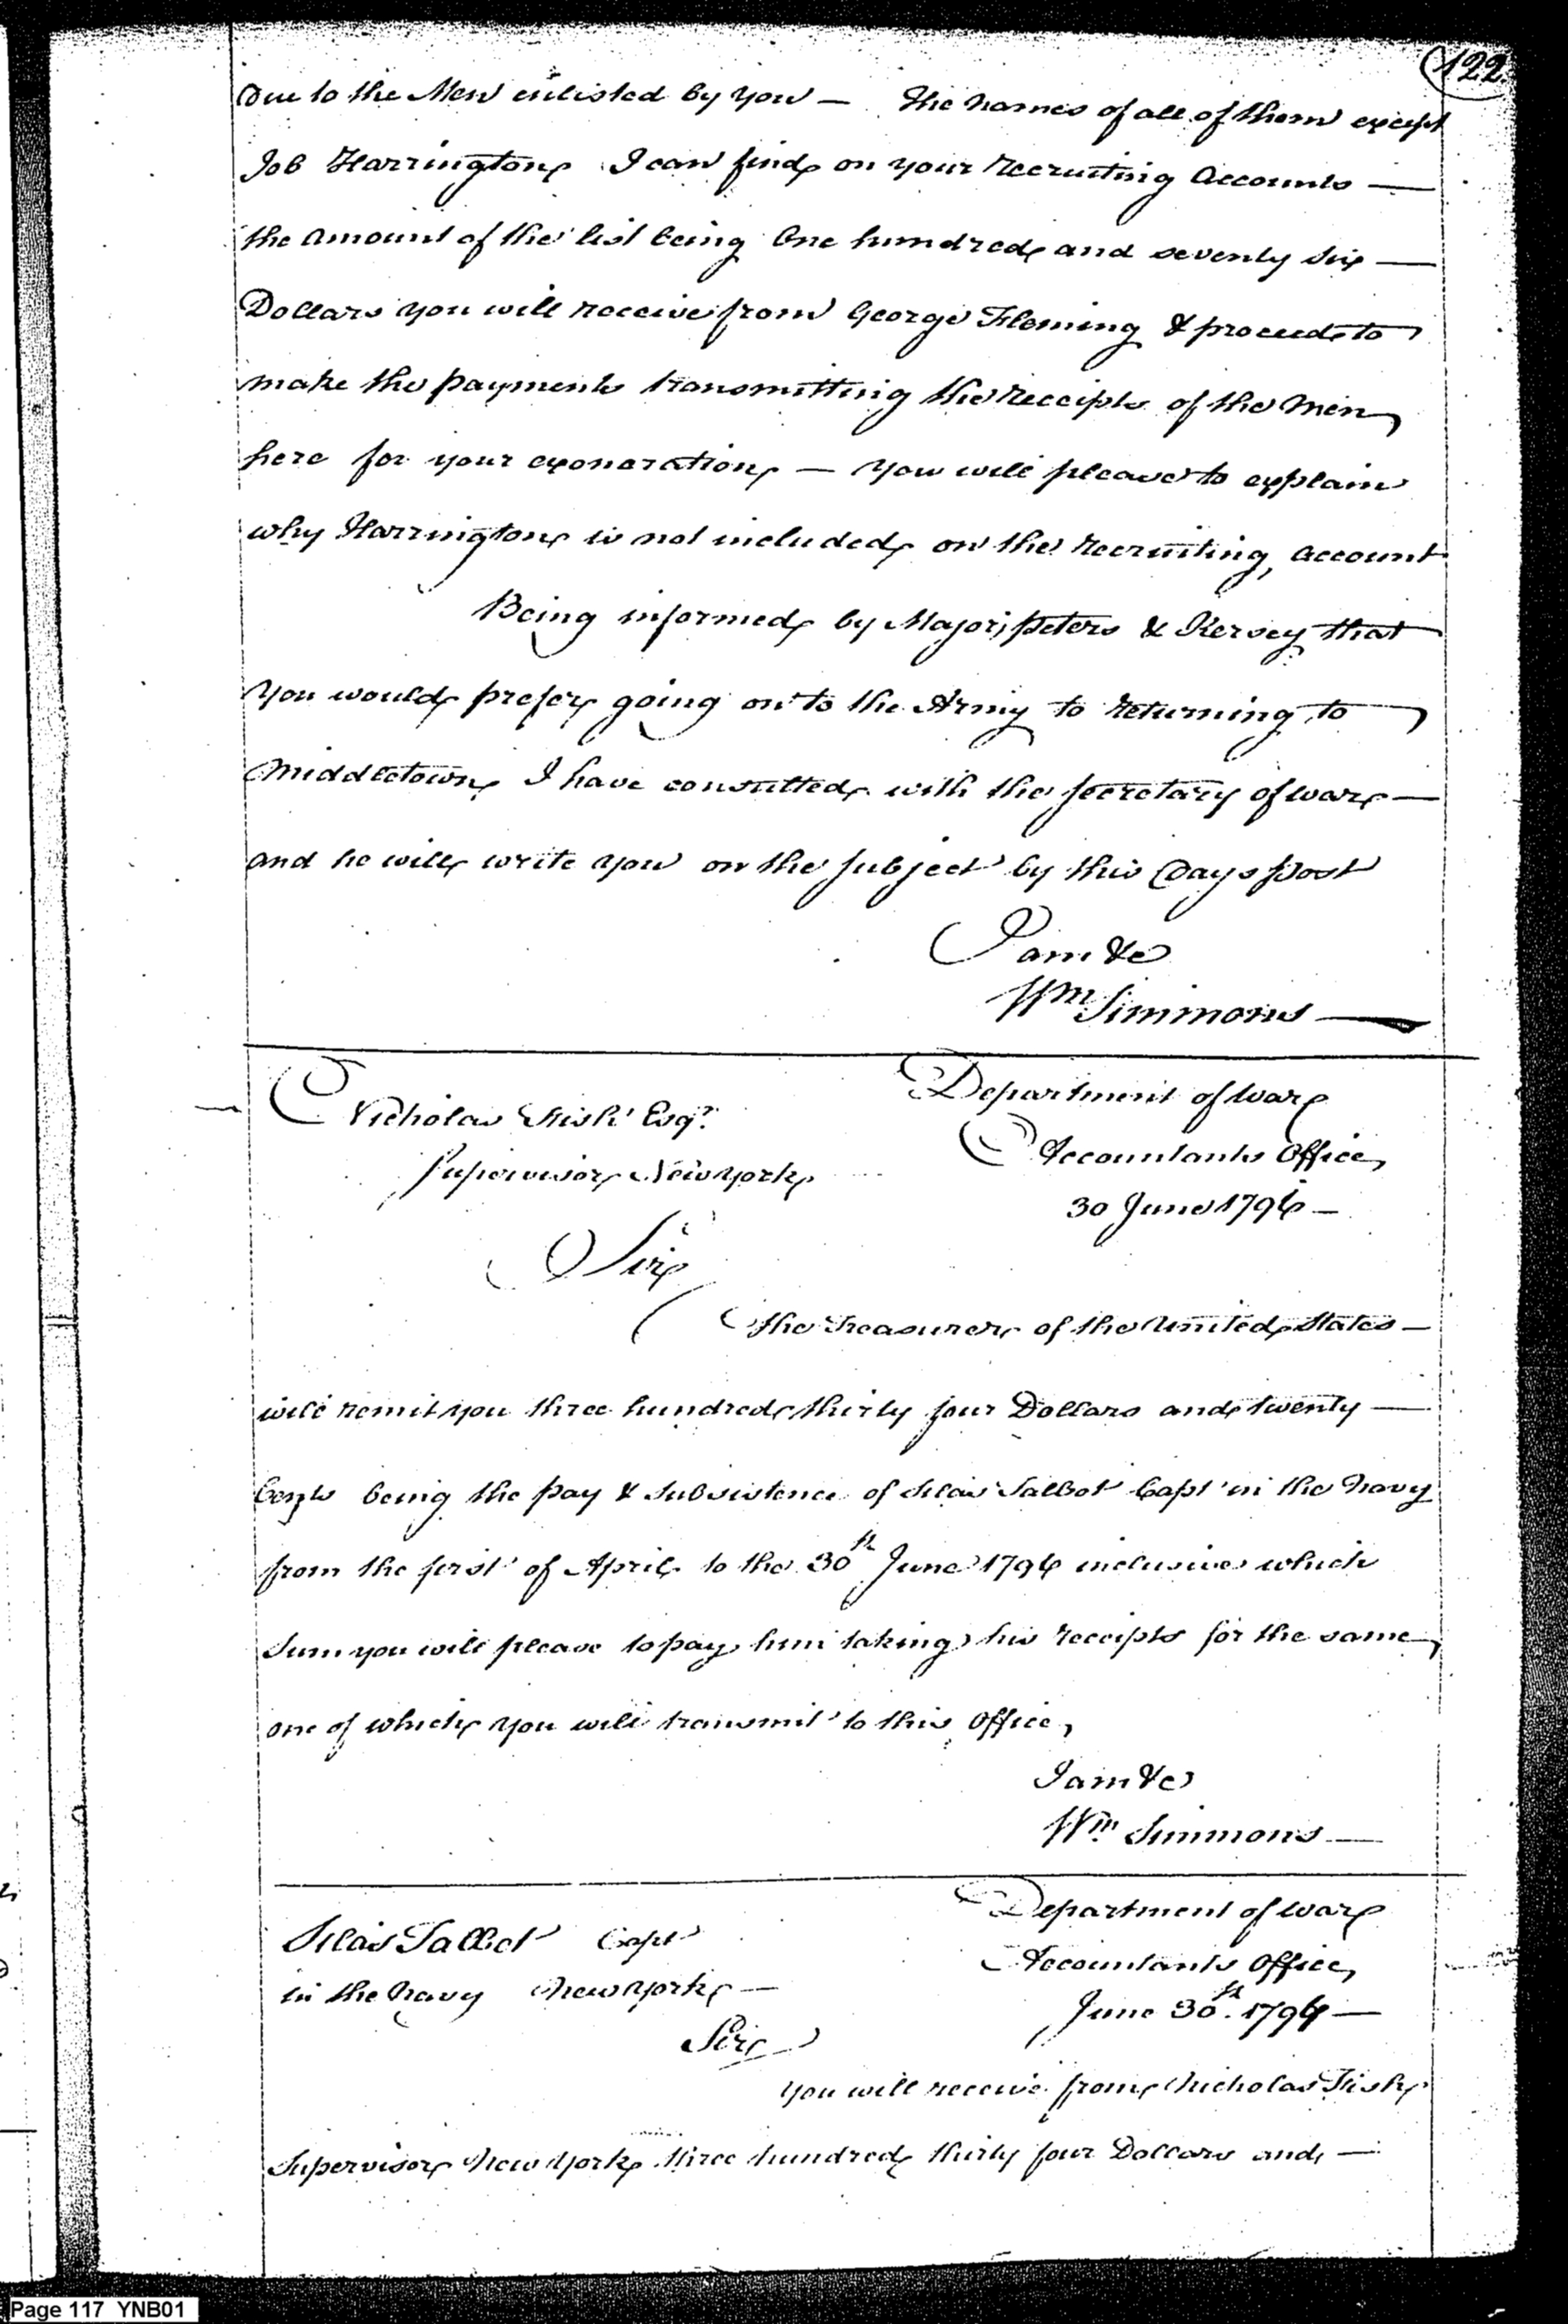 122
Due to the Men enlisted by you — The names of all of them except
Job Harrington I can find on your recruiting Accounts —
the amount of the list being One hundred and seventy six —
Dollars you will receive from George Fleming & proceed to
make the payments transmitting the receipts of the men
here for your exoneration — You will please to explain
why Harrington is not included on the recruiting account
Being informed by Majors Peters & Kersey that
you would prefer going on to the Army to returning to
Middletown I have consulted with the Secretary of War —
and he will write you on the subject by this Days post
I am &c
Wm Simmons —
Nicholas Fish Esqr.
Supervisor New York
Department of War
Accountants Office,
30 June 1796 —
Sir
The Treasurer of the United States —
will remit you three hundred thirty four Dollars and twenty —
Cents being the pay & subsistence of Silas Talbot Capt in the Navy
from the first of April to the 30th June 1796 inclusive which
Sum you will please to pay him taking his receipts for the same,
one of which you will transmit to this Office,
I am &c
Wm Simmons —
Silas Talbot Capt
in the Navy New York —
Department of War
Accountants Office,
June 30th. 1796 —
Sir
You will receive from Nicholas Fish
Supervisor New York three hundred thirty four Dollars and —
Page 117 YNB01